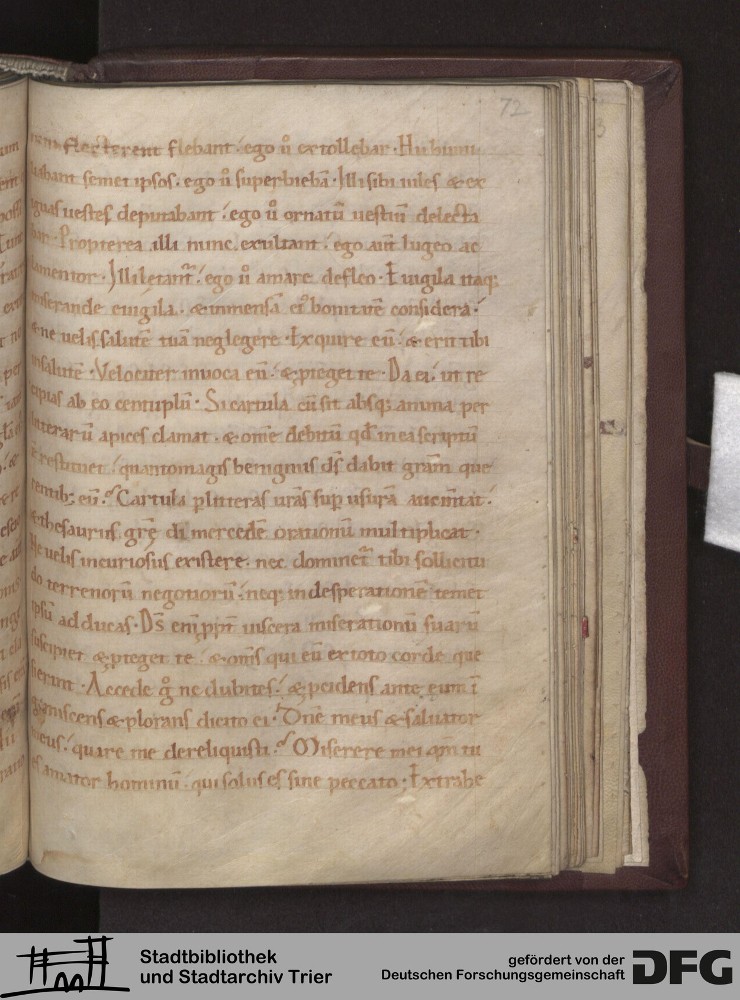 72
flecterent flebant. ego ů extollebar. Hi humi
liabant semet ipsos. ego ů superbiebā. Illi sibi uiles & ex
iguas uestes deputabant. ego ů ornatū uestiū delecta
bar. Propterea illi nunc exultant. ego aut̄ lugeo ac
lamentor. Illi letant̄. ego ů amare defleo. Euigila itaq;
miserande euigila. & inmensā ei' bonitatē considera.
& ne uelis salutē tuā neglegere. Exquire eū. & erit tibi
in salutē. Velociter inuoca eū. & p̱teget te. Da ei. ut re
cipias ab eo centuplū. Si cartula cū sit absq; anima per
litterarū apices clamat. & om̄e debitū qđ in ea scriptū
ē restituet. quanto magis benignus dš dabit gr̄am que
rentib; eū. Cartula p̱ litteras ur̄as sup̱ usurā
& thesaurus grē di mercedē orationū multiplicat.
Ne uelis incuriosus existere. nec dominet̄ tibi sollicitu
do terrenorū negotiorū. neq; in desperationē temet
ipsū adducas. Dš eni p̱p̱t̄ uiscera miserationū suarū
suscipiet & p̱teget te. & om̄s qui eū ex toto corde que
sierint. Accede ǧ ne dubites. & p̱cidens ante eum ī
gemiscens & plorans dicito ei. Dn̄e meus & saluator
meus. quare me dereliquisti. Miserere mei qm̄ tu
es amator hominū. qui solus es sine peccato; Extrahe
Stadtbibliothek
und Stadtarchiv Trier
gefördert von der
Deutschen Forschungsgemeinschaft
DFG